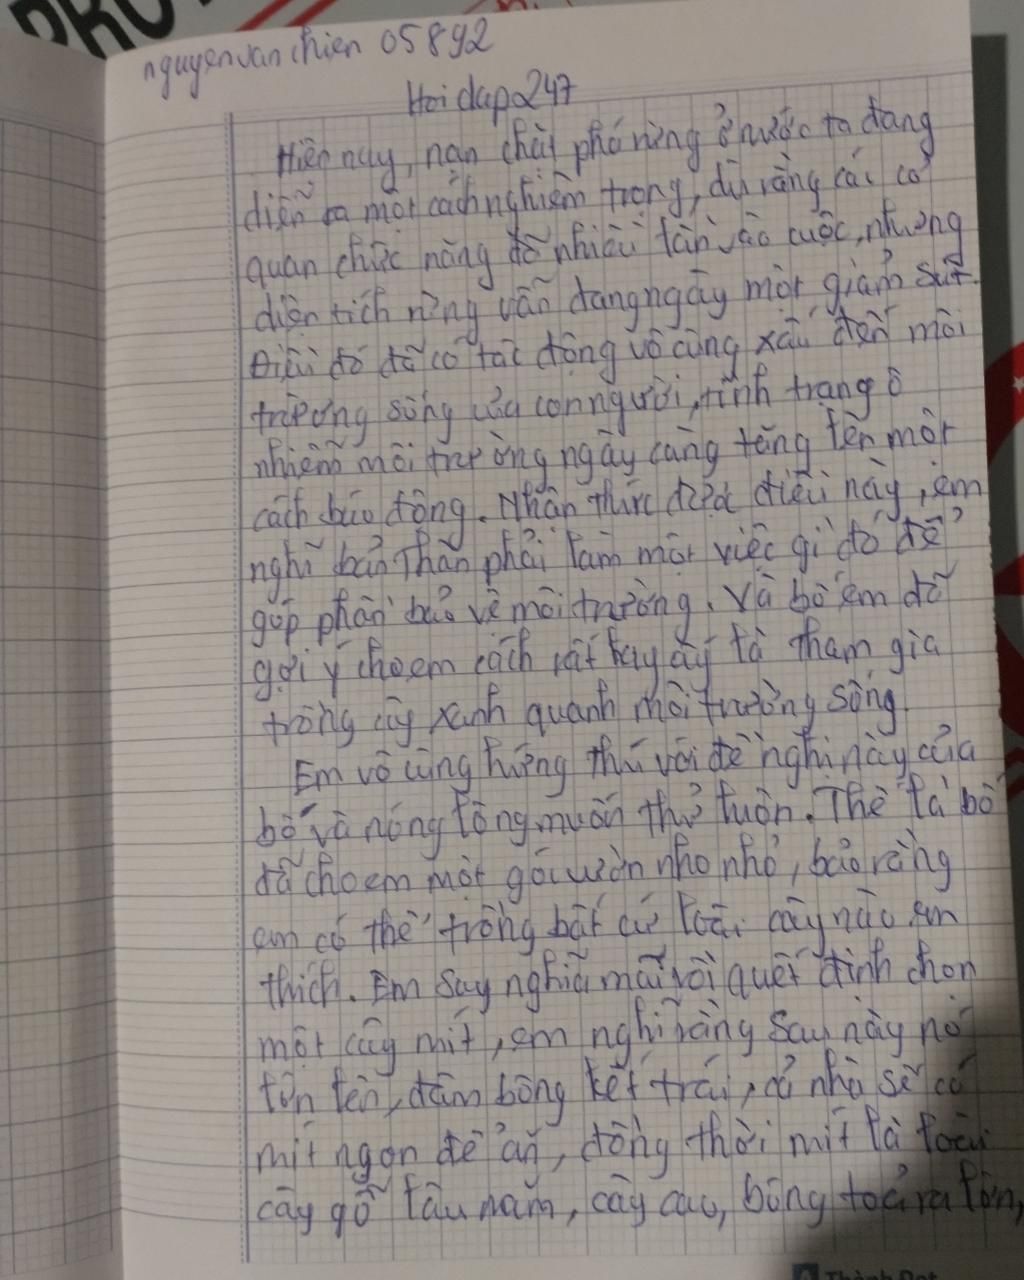 PRO
nguyenvanchien 05892
Hoidap247
Hiện nay, nạn chặt phá rừng ở nước ta đang
diễn ra một cách nghiêm trọng, dù rằng các cơ
quan chức năng đã nhiều lần vào cuộc, nhưng
diện tích rừng vẫn đang ngày một giảm sút.
Điều đó đã có tác động vô cùng xấu đến môi
trường sống của con người, tình trạng ô
nhiễm môi trường ngày càng tăng lên một
cách báo động. Nhận thức được điều này, em
nghĩ bản thân phải làm một việc gì đó để
góp phần bảo vệ môi trường. Và bố em đã
gợi ý cho em cách rất hay ấy là tham gia
trồng cây xanh quanh môi trường sống.
Em vô cùng hứng thú với đề nghị này của
bố và nóng lòng muốn thử luôn. Thế là bố
đã cho em một góc vườn nho nhỏ, bảo rằng
em có thể trồng bất cứ loài cây nào em
thích. Em suy nghĩ mãi rồi quết định chọn
một cây mít, em nghĩ rằng sau này nó
lớn lên, đâm bông kết trái, cả nhà sẽ có
mít ngon để ăn, đồng thời mít là loài
cây gỗ lâu năm, cây cao, bóng toả ra lớn,